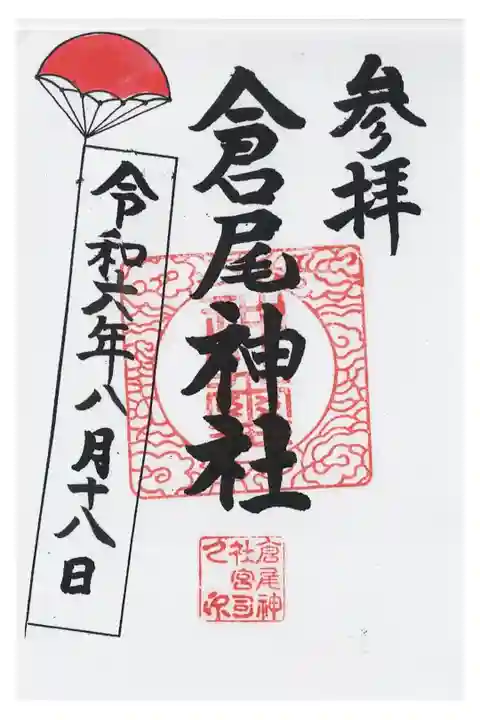 参拝
倉尾神社
令和六年八月十八日
倉尾神
社宮司